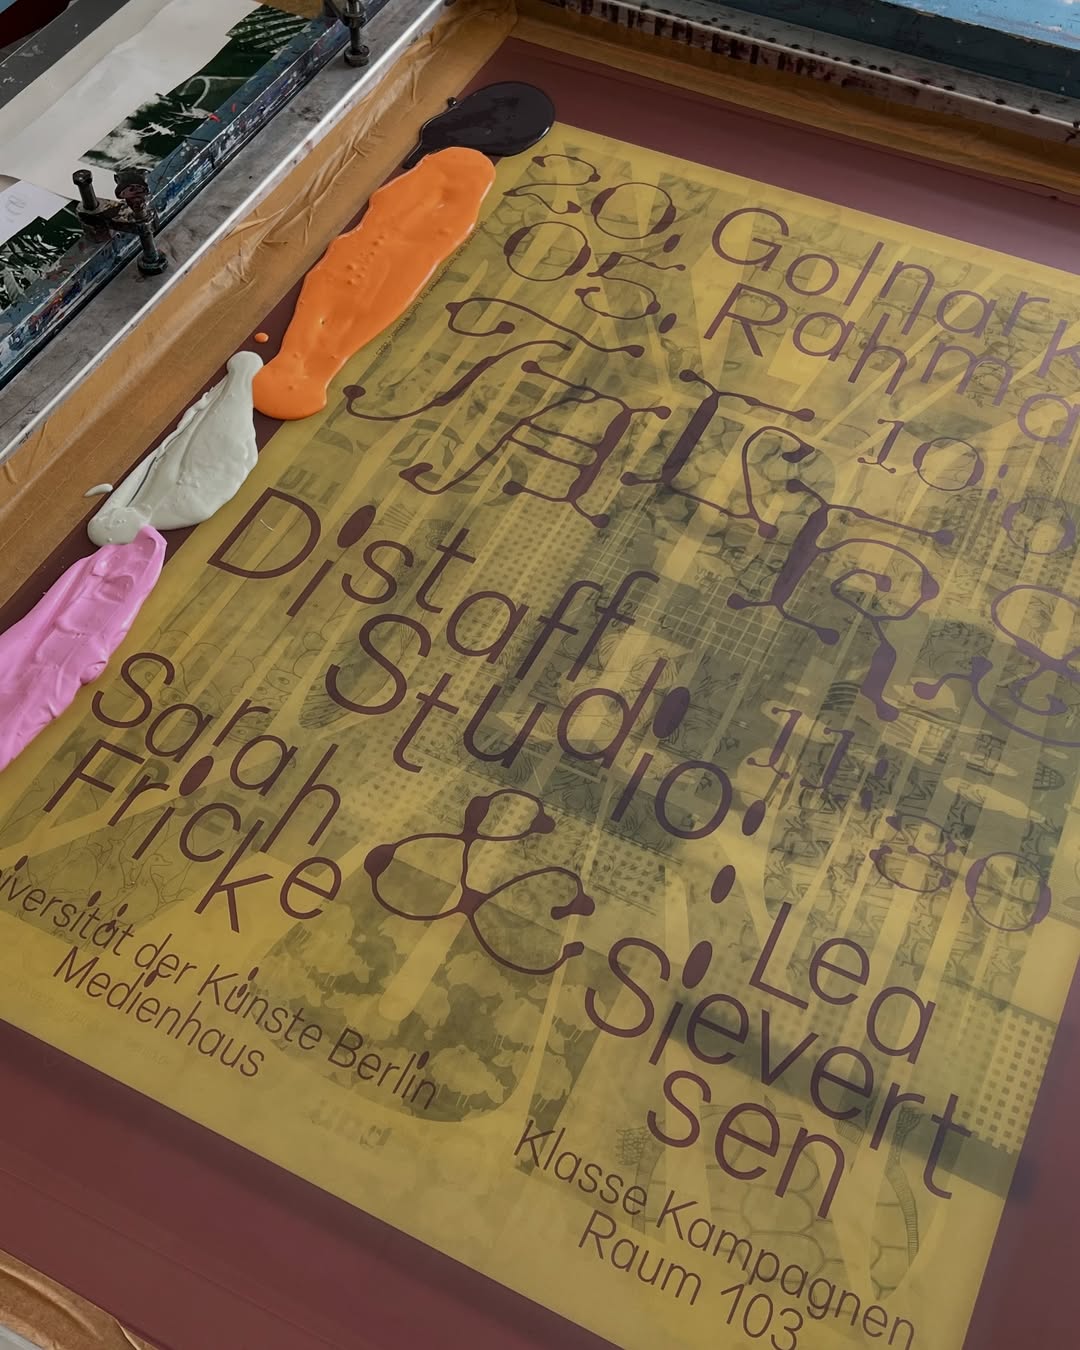 20.
05.
Golnar K
Rahma
10:0
Distaff
Studio:
11:30
Sarah
Fricke
&
Lea
Sievert
sen
iversität der Künste Berlin
Medienhaus
Klasse Kampagnen
Raum 103